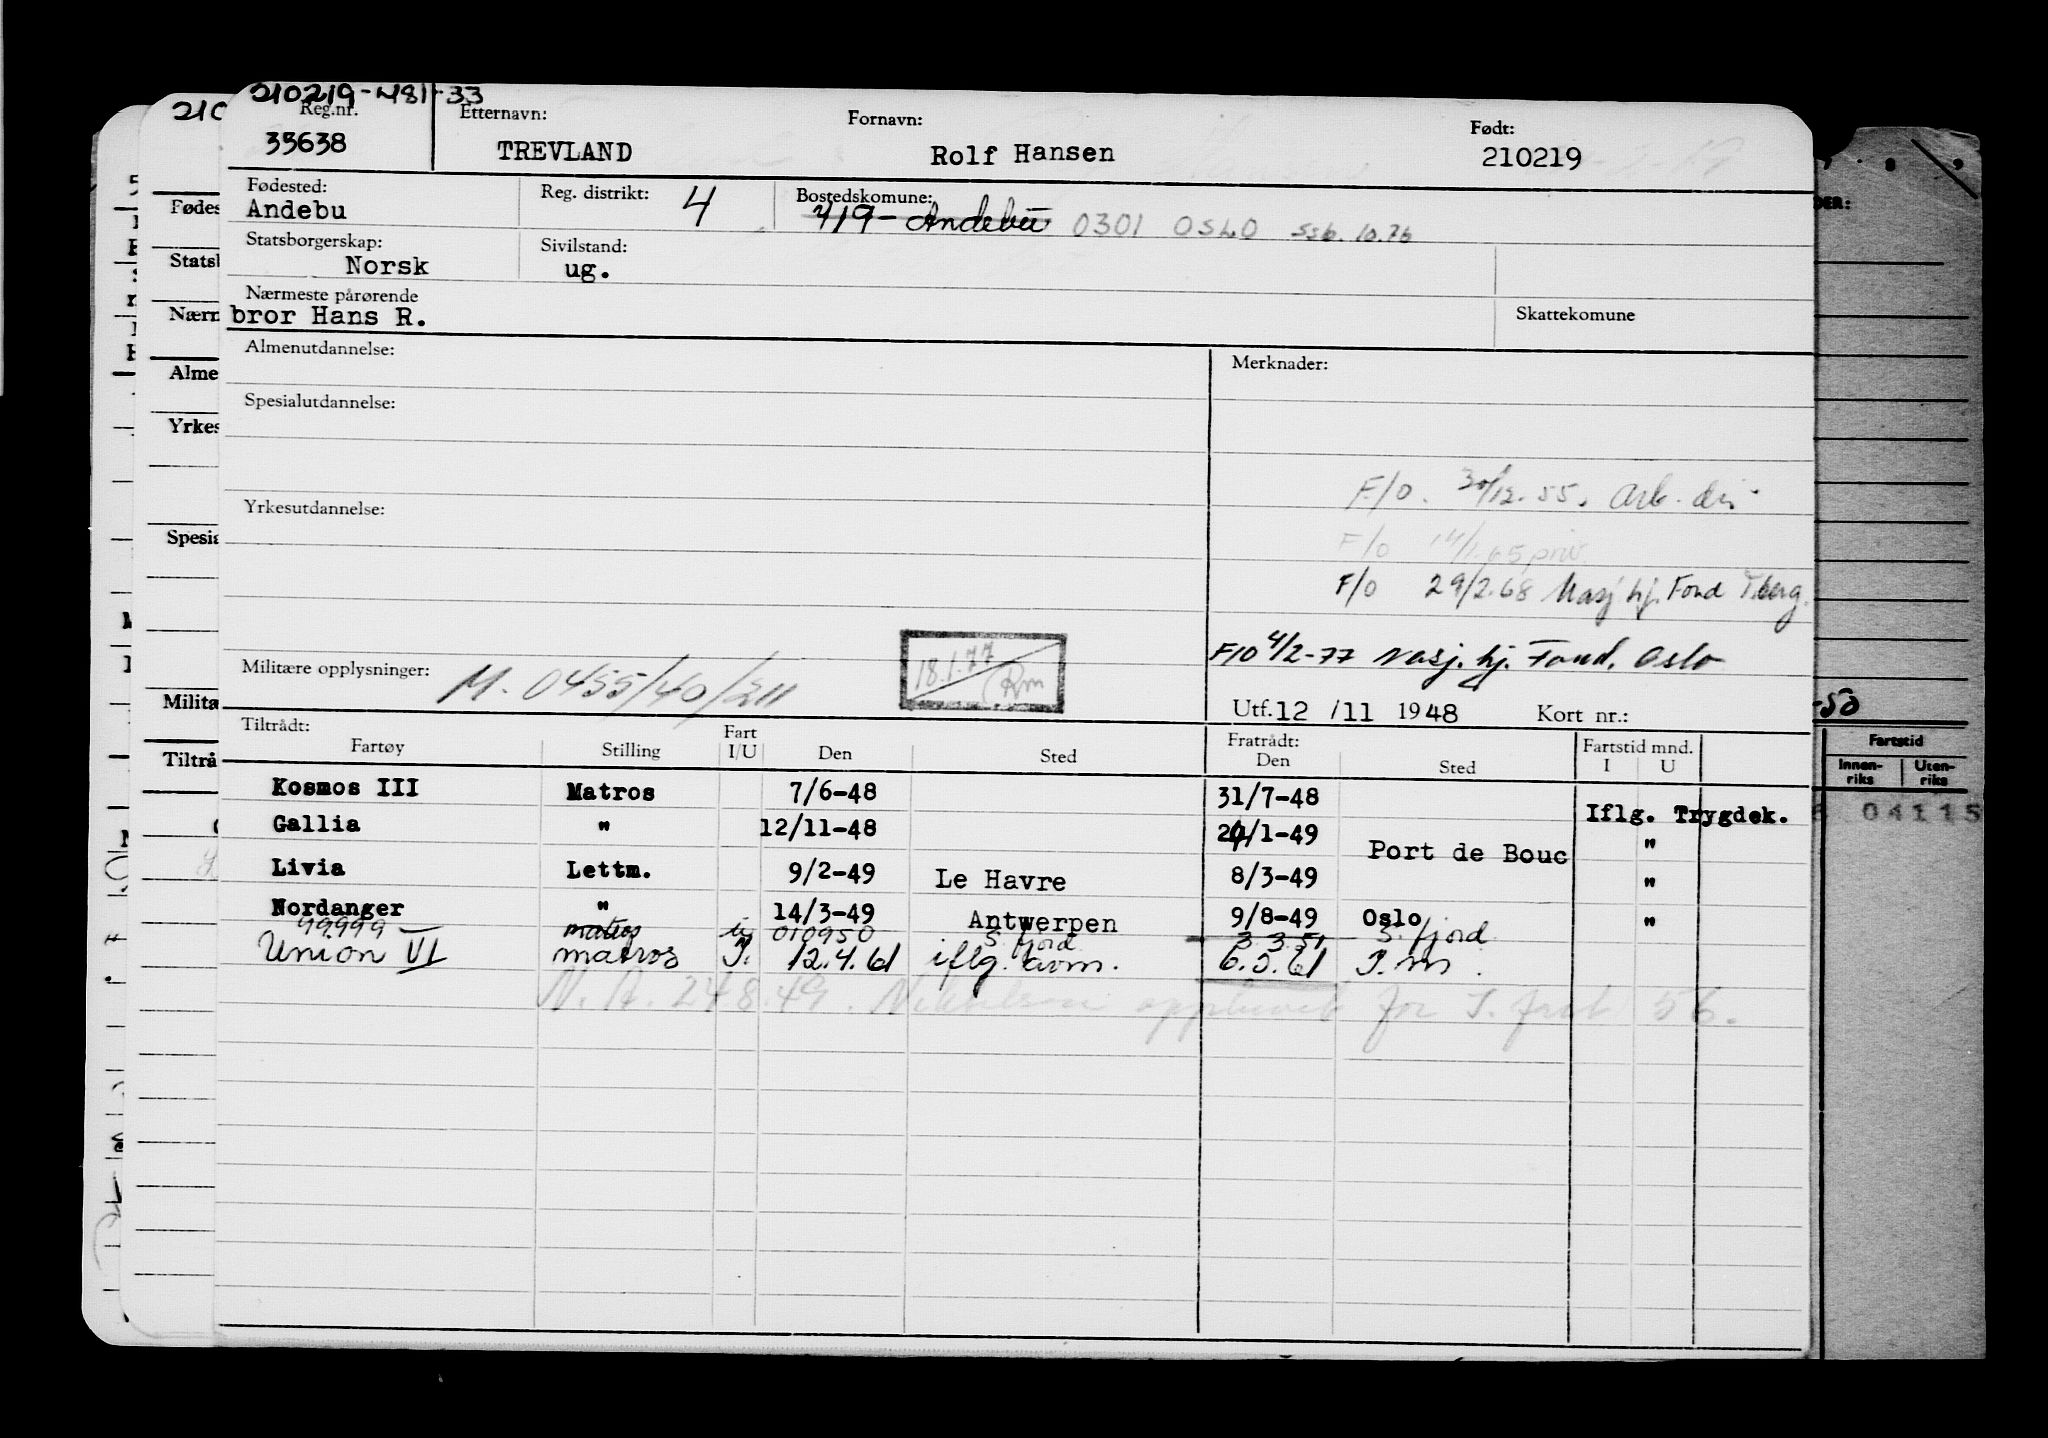 210219-481-33
Reg.nr. Etternavn: Fornavn: Født:
33638 TREVLAND Rolf Hansen 210219
Fødested: Reg. distrikt: 4 Bostedskomune:
Andebu 719- Andebu 0301 OSLO SSB. 10.76
Statsborgerskap: Sivilstand:
Norsk ug.
Nærmeste pårørende Skattekomune
bror Hans R.
Almenutdannelse: Merknader:
Spesialutdannelse:
F/O. 30/12.55. Arb. dir.
Yrkesutdannelse:
F/O 14/1.65 priv
F/O 29/2.68 Nasj. hj. Fond T.berg.
F/O 4/2-77 Nasj. hj. Fond. Oslo
Militære opplysninger: M. 0455/40/211 18.1.77 Rm
Utf. 12 /11 1948 Kort nr.:
Tiltrådt: Fart Fratrådt: Fartstid mnd.
Fartøy Stilling I/U Den Sted Den Sted I U
Kosmos III Matros 7/6-48 31/7-48 Iflg. Trygdek.
Gallia " 12/11-48 24/1-49 Port de Bouc "
Livia Lettm. 9/2-49 Le Havre 8/3-49 "
Nordanger " 14/3-49 Antwerpen 9/8-49 Oslo "
99999 matros 010950 S. fjord 3 3 51 S. fjord
Union VI matros I. 12.4.61 iflg. avm. 6.5.61 I.m.
N. A. 24.8.49. for I. fart 56.
210
Fødes
Stats
Nærm
Alme
Yrkes
Spesia
Militæ
Tiltrå
-50
Fartstid
Innen-riks Uten-riks
04115